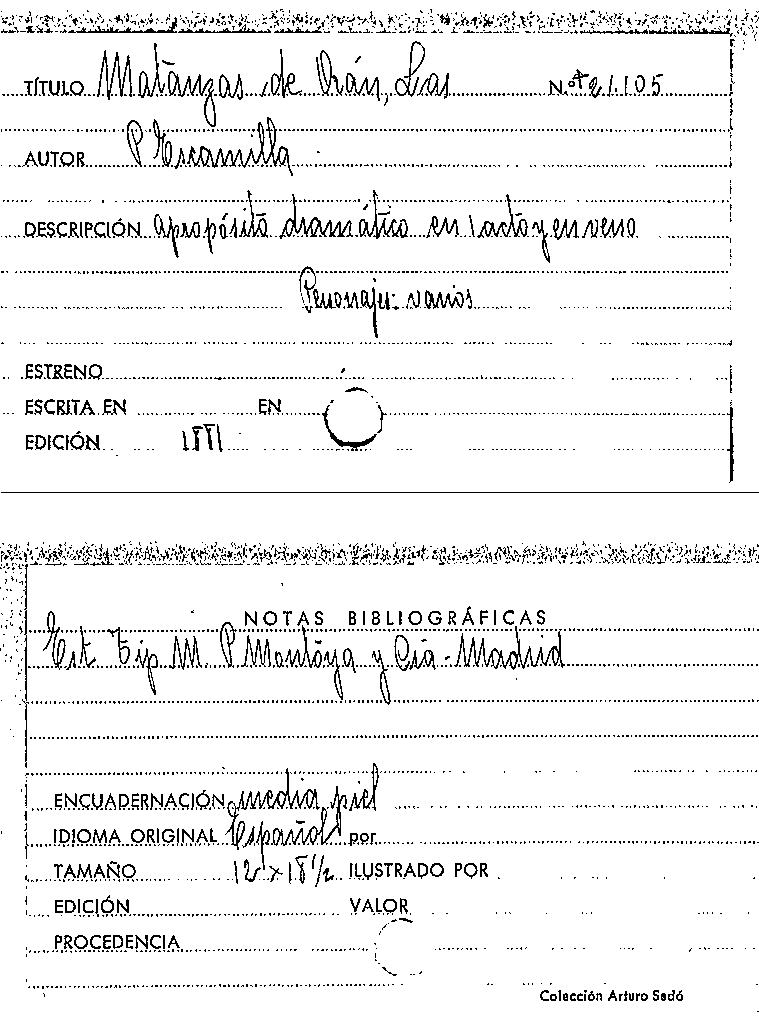 TÍTULO Matanzas de Orán, Las N.º 21.105
AUTOR P Escamilla
DESCRIPCIÓN apropósito dramático en 1 acto y en verso
Personajes: varios
ESTRENO
ESCRITA EN EN
EDICIÓN 1881
NOTAS BIBLIOGRÁFICAS
Est Tip M. P Montoya y Cia - Madrid
ENCUADERNACIÓN media piel
IDIOMA ORIGINAL Español por
TAMAÑO 12 x 18 1/2 ILUSTRADO POR
EDICIÓN VALOR
PROCEDENCIA
Colección Arturo Sedó